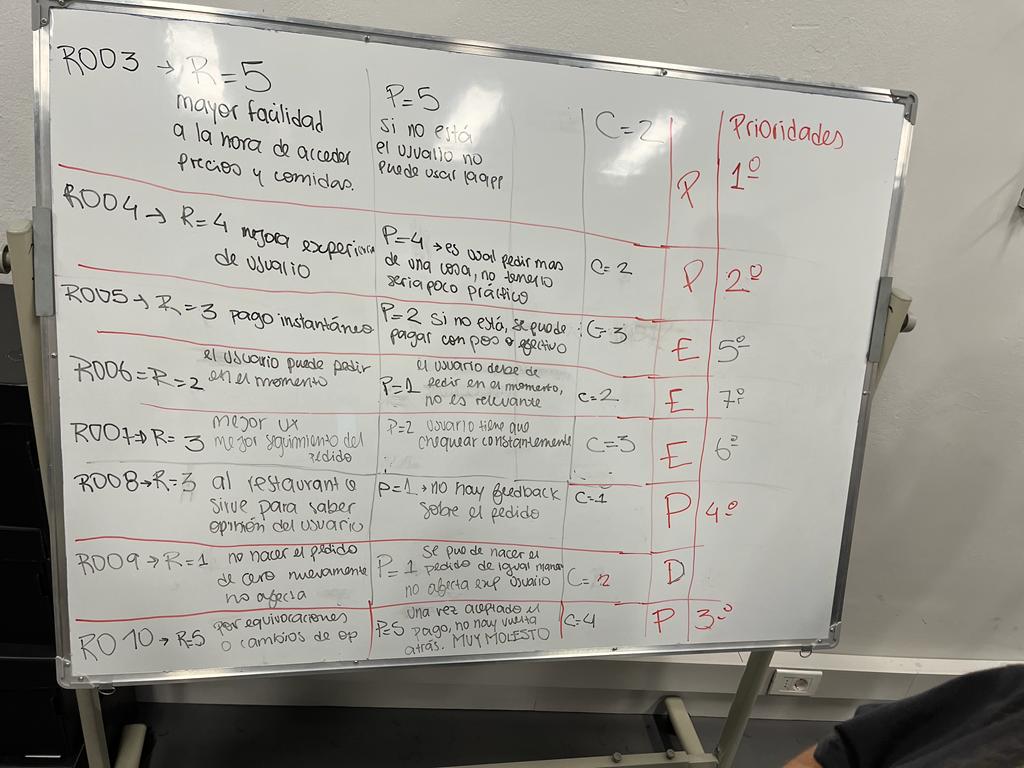 R003 → R=5
mayor facilidad
a la hora de acceder
precios y comidas.
P=5
si no está
el usuario no
puede usar la app
C=2
P
Prioridades
1º
R004 → R=4 mejora experiencia
de usuario
P=4 → es usual pedir mas
de una cosa, no tenerlo
seria poco práctico
C=2
P
2º
R005 → R=3 pago instantáneo
P=2 si no está, se puede
pagar con pos o efectivo
C=3
E
5º
R006 = R=2 el usuario puede pedir
en el momento
el usuario debe de
P=1 pedir en el momento,
no es relevante
C=2
E
7º
R007 → R=3 mejor UX
mejor seguimiento del
pedido
P=2 usuario tiene que
chequear constantemente
C=3
E
6º
R008 → R=3 al restaurante
sirve para saber
opinión del usuario
P=1 → no hay feedback
sobre el pedido
C=1
P
4º
R009 → R=1 no hacer el pedido
de cero nuevamente
no afecta
se puede hacer el
P=1 pedido de igual manera
no afecta exp usuario
C=2
D
R010 → R=5 por equivocaciones
o cambios de op
P=5 una vez aceptado el
pago, no hay vuelta
atrás. MUY MOLESTO
C=4
P
3º